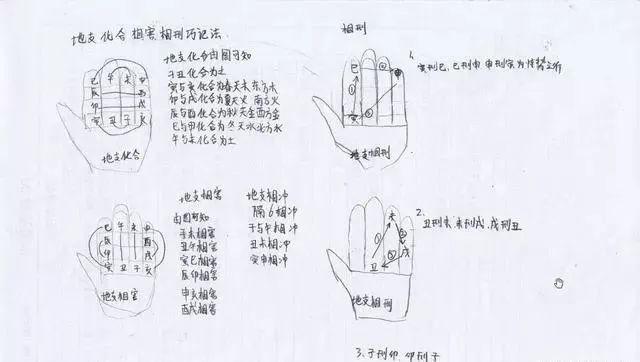 地支化合 相害 相刑巧记法
地支化合由图可知
子丑化合为土
寅与亥化合为春天木东方木
卯与戌化合为夏天火 南方火
辰与酉化合为秋天金西方金
巳与申化合为冬天水北方水
午与未化合为土
巳 午 未 申
辰 酉
卯 戌
寅 丑 子 亥
地支化合
相刑
1.
寅刑巳、巳刑申 申刑寅为恃势之刑
巳
①
②
寅
地支相刑
地支相害
由图可知
子未相害
丑午相害
寅巳相害
卯辰相害
申亥相害
酉戌相害
地支相冲
隔6相冲
子与午相冲
丑未相冲
寅申相冲
巳 午 未 申
辰 酉
卯 戌
寅 丑 子 亥
地支相害
2.
丑刑未、未刑戌、戌刑丑
未
①
戌
丑
地支相刑
3、子刑卯、卯刑子